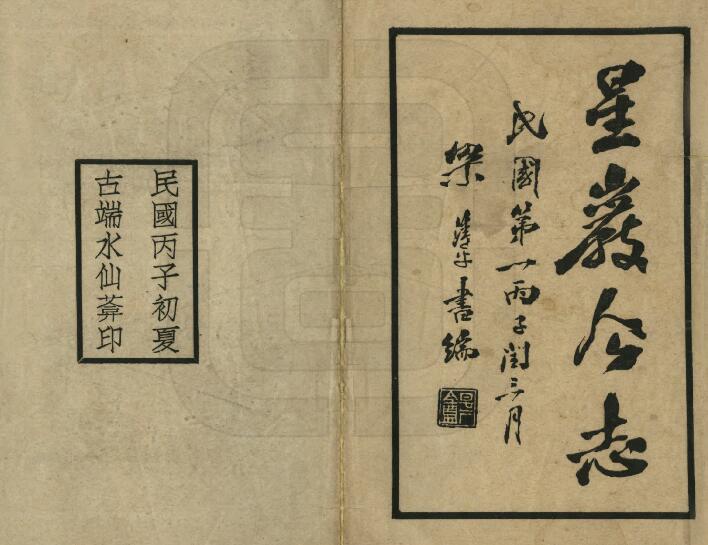 星巖今志
民國第一丙子閏三月
梁
書耑
民國丙子初夏
古端水仙葊印